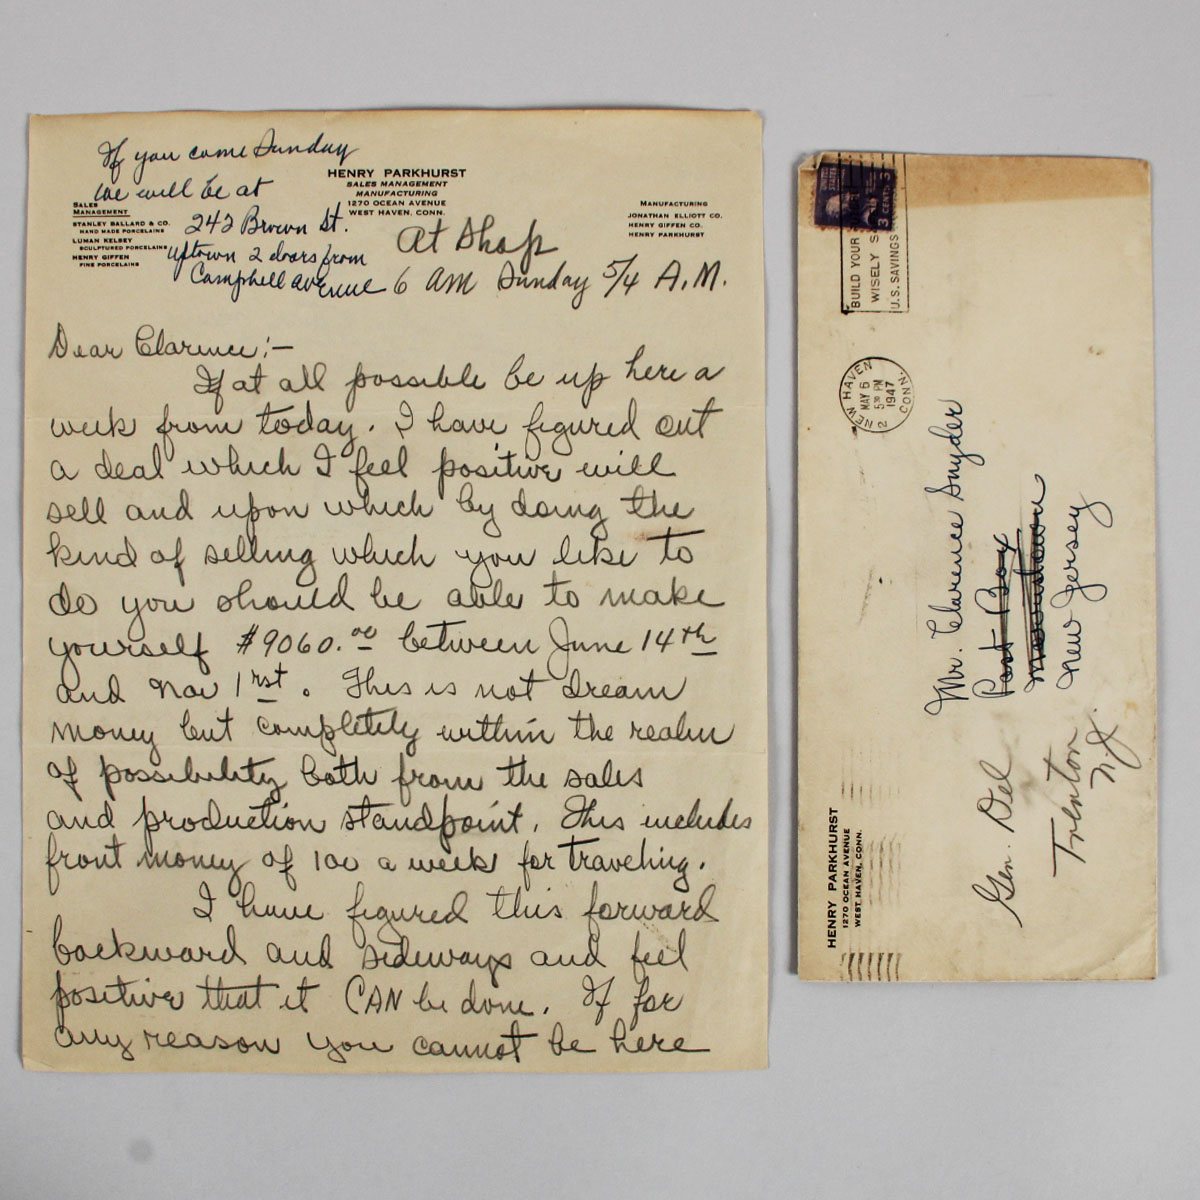 If you come Sunday
we will be at
242 Brown St.
uptown 2 doors from
Campbell avenue
HENRY PARKHURST
SALES MANAGEMENT
MANUFACTURING
1270 OCEAN AVENUE
WEST HAVEN, CONN.
SALES
MANAGEMENT
STANLEY BALLARD & CO.
HAND MADE PORCELAINS
LUMAN KELSEY
SCULPTURED PORCELAINS
HENRY GIFFEN
FINE PORCELAINS
MANUFACTURING
JONATHAN ELLIOTT CO.
HENRY GIFFEN CO.
HENRY PARKHURST
At Shop
6 AM Sunday 5/4 A.M.
Dear Clarence:-
If at all possible be up here a
week from today. I have figured out
a deal which I feel positive will
sell and upon which by doing the
kind of selling which you like to
do you should be able to make
yourself $9060.00 between June 14th
and Nov 1rst. This is not dream
money but completely within the realm
of possibility both from the sales
and production standpoint. This includes
front money of 100 a week for traveling.
I have figured this forward
backward and sideways and feel
positive that it CAN be done. If for
any reason you cannot be here
3 CENTS 3
BUILD YOUR
WISELY
U.S. SAVINGS
NEW HAVEN
MAY 6
5 30 PM
1947
2 CONN.
Mr. Clarence Snyder
Post Box
New Jersey
Gen. Del
Trenton
N.J.
HENRY PARKHURST
1270 OCEAN AVENUE
WEST HAVEN, CONN.